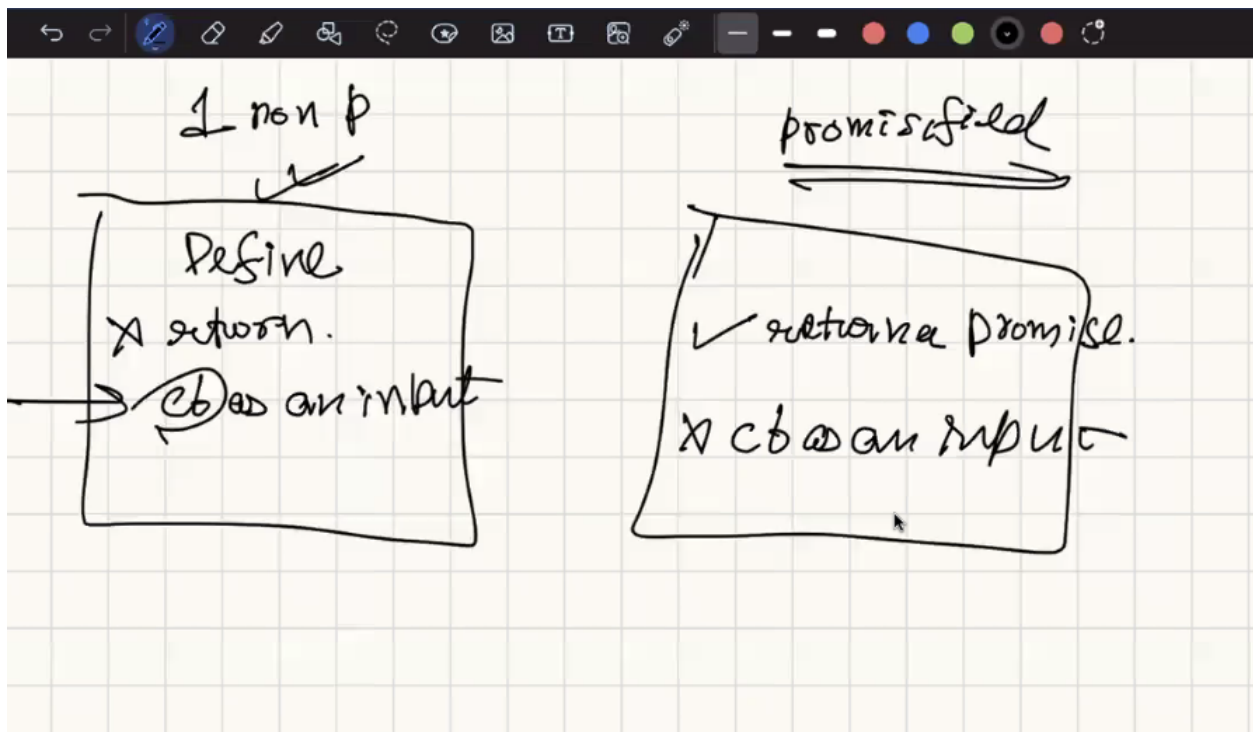 1 non p
Define
X return.
cb as an input
promisified
✓ return a promise.
X cb as an input